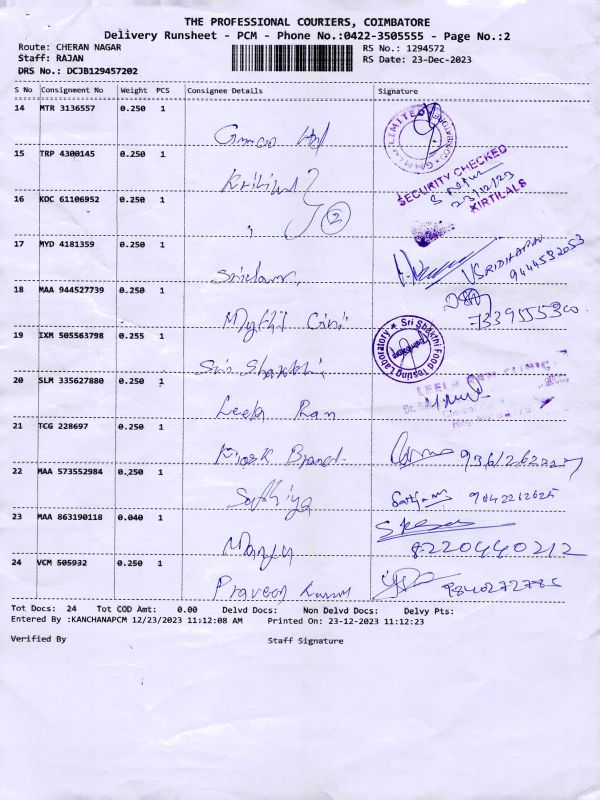 THE PROFESSIONAL COURIERS, COIMBATORE
Delivery Runsheet - PCM - Phone No.:0422-3505555 - Page No.:2
Route: CHERAN NAGAR RS No.: 1294572
Staff: RAJAN RS Date: 23-Dec-2023
DRS No.: DCJB129457202
S No Consignment No Weight PCS Consignee Details Signature
14 MTR 3136557 0.250 1
LIMITED
15 TRP 4300145 0.250 1
SECURITY CHECKED
23/12/23
KIRTILALS
16 KOC 61106952 0.250 1
2
17 MYD 4181359 0.250 1
VSRIDHARAN
Sridharan
18 MAA 944527739 0.250 1
19 IXM 505563798 0.255 1
Sri Shakthi Food Testing Laboratory
Sri Shakthi
20 SLM 335627880 0.250 1
LEELA CLINIC
Leela Ram
21 TCG 228697 0.250 1
Kiosk
22 MAA 573552984 0.250 1
Sathiya 9042212625
23 MAA 863190118 0.040 1
Manju 8220440212
24 VCM 505932 0.250 1
Praveen Kumar 9840272785
Tot Docs: 24 Tot COD Amt: 0.00 Delvd Docs: Non Delvd Docs: Delvy Pts:
Entered By :KANCHANAPCM 12/23/2023 11:12:08 AM Printed On: 23-12-2023 11:12:23
Verified By Staff Signature